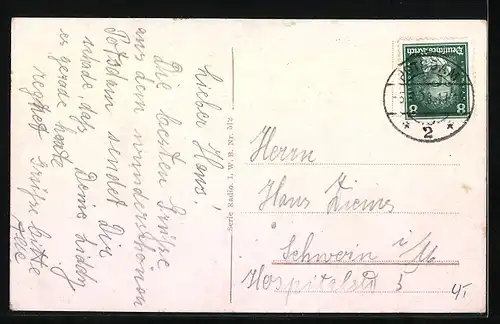 Lieber Hans!
Die besten Grüße
aus dem wunderschönen
Potsdam sendet Dir
schade daß
es gerade heute
regnet Grüße bitte
Serie Radio. I. W. B. Nr. 512
Deutsches Reich
8 8
2
Herrn
Hans Ziemes
Schwerin i/M
Hospitalstr 5